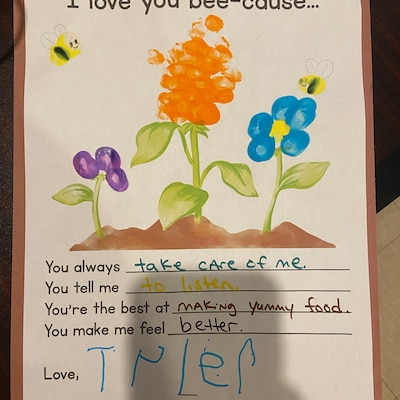 I love you bee-cause...
You always take care of me.
You tell me to listen.
You're the best at making yummy food.
You make me feel better.
Love, Tyler